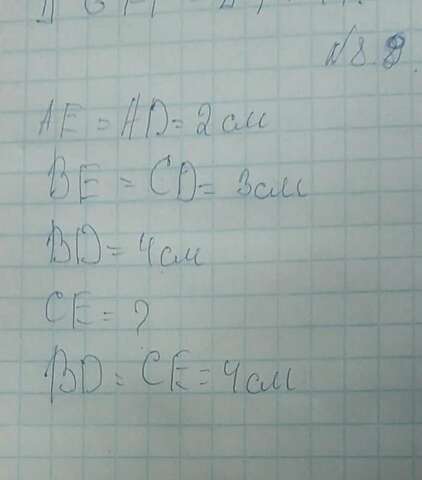 № 8.8.
AE = AD = 2 см
BE = CD = 3 см
BD = 4 см
CE = ?
BD = CE = 4 см